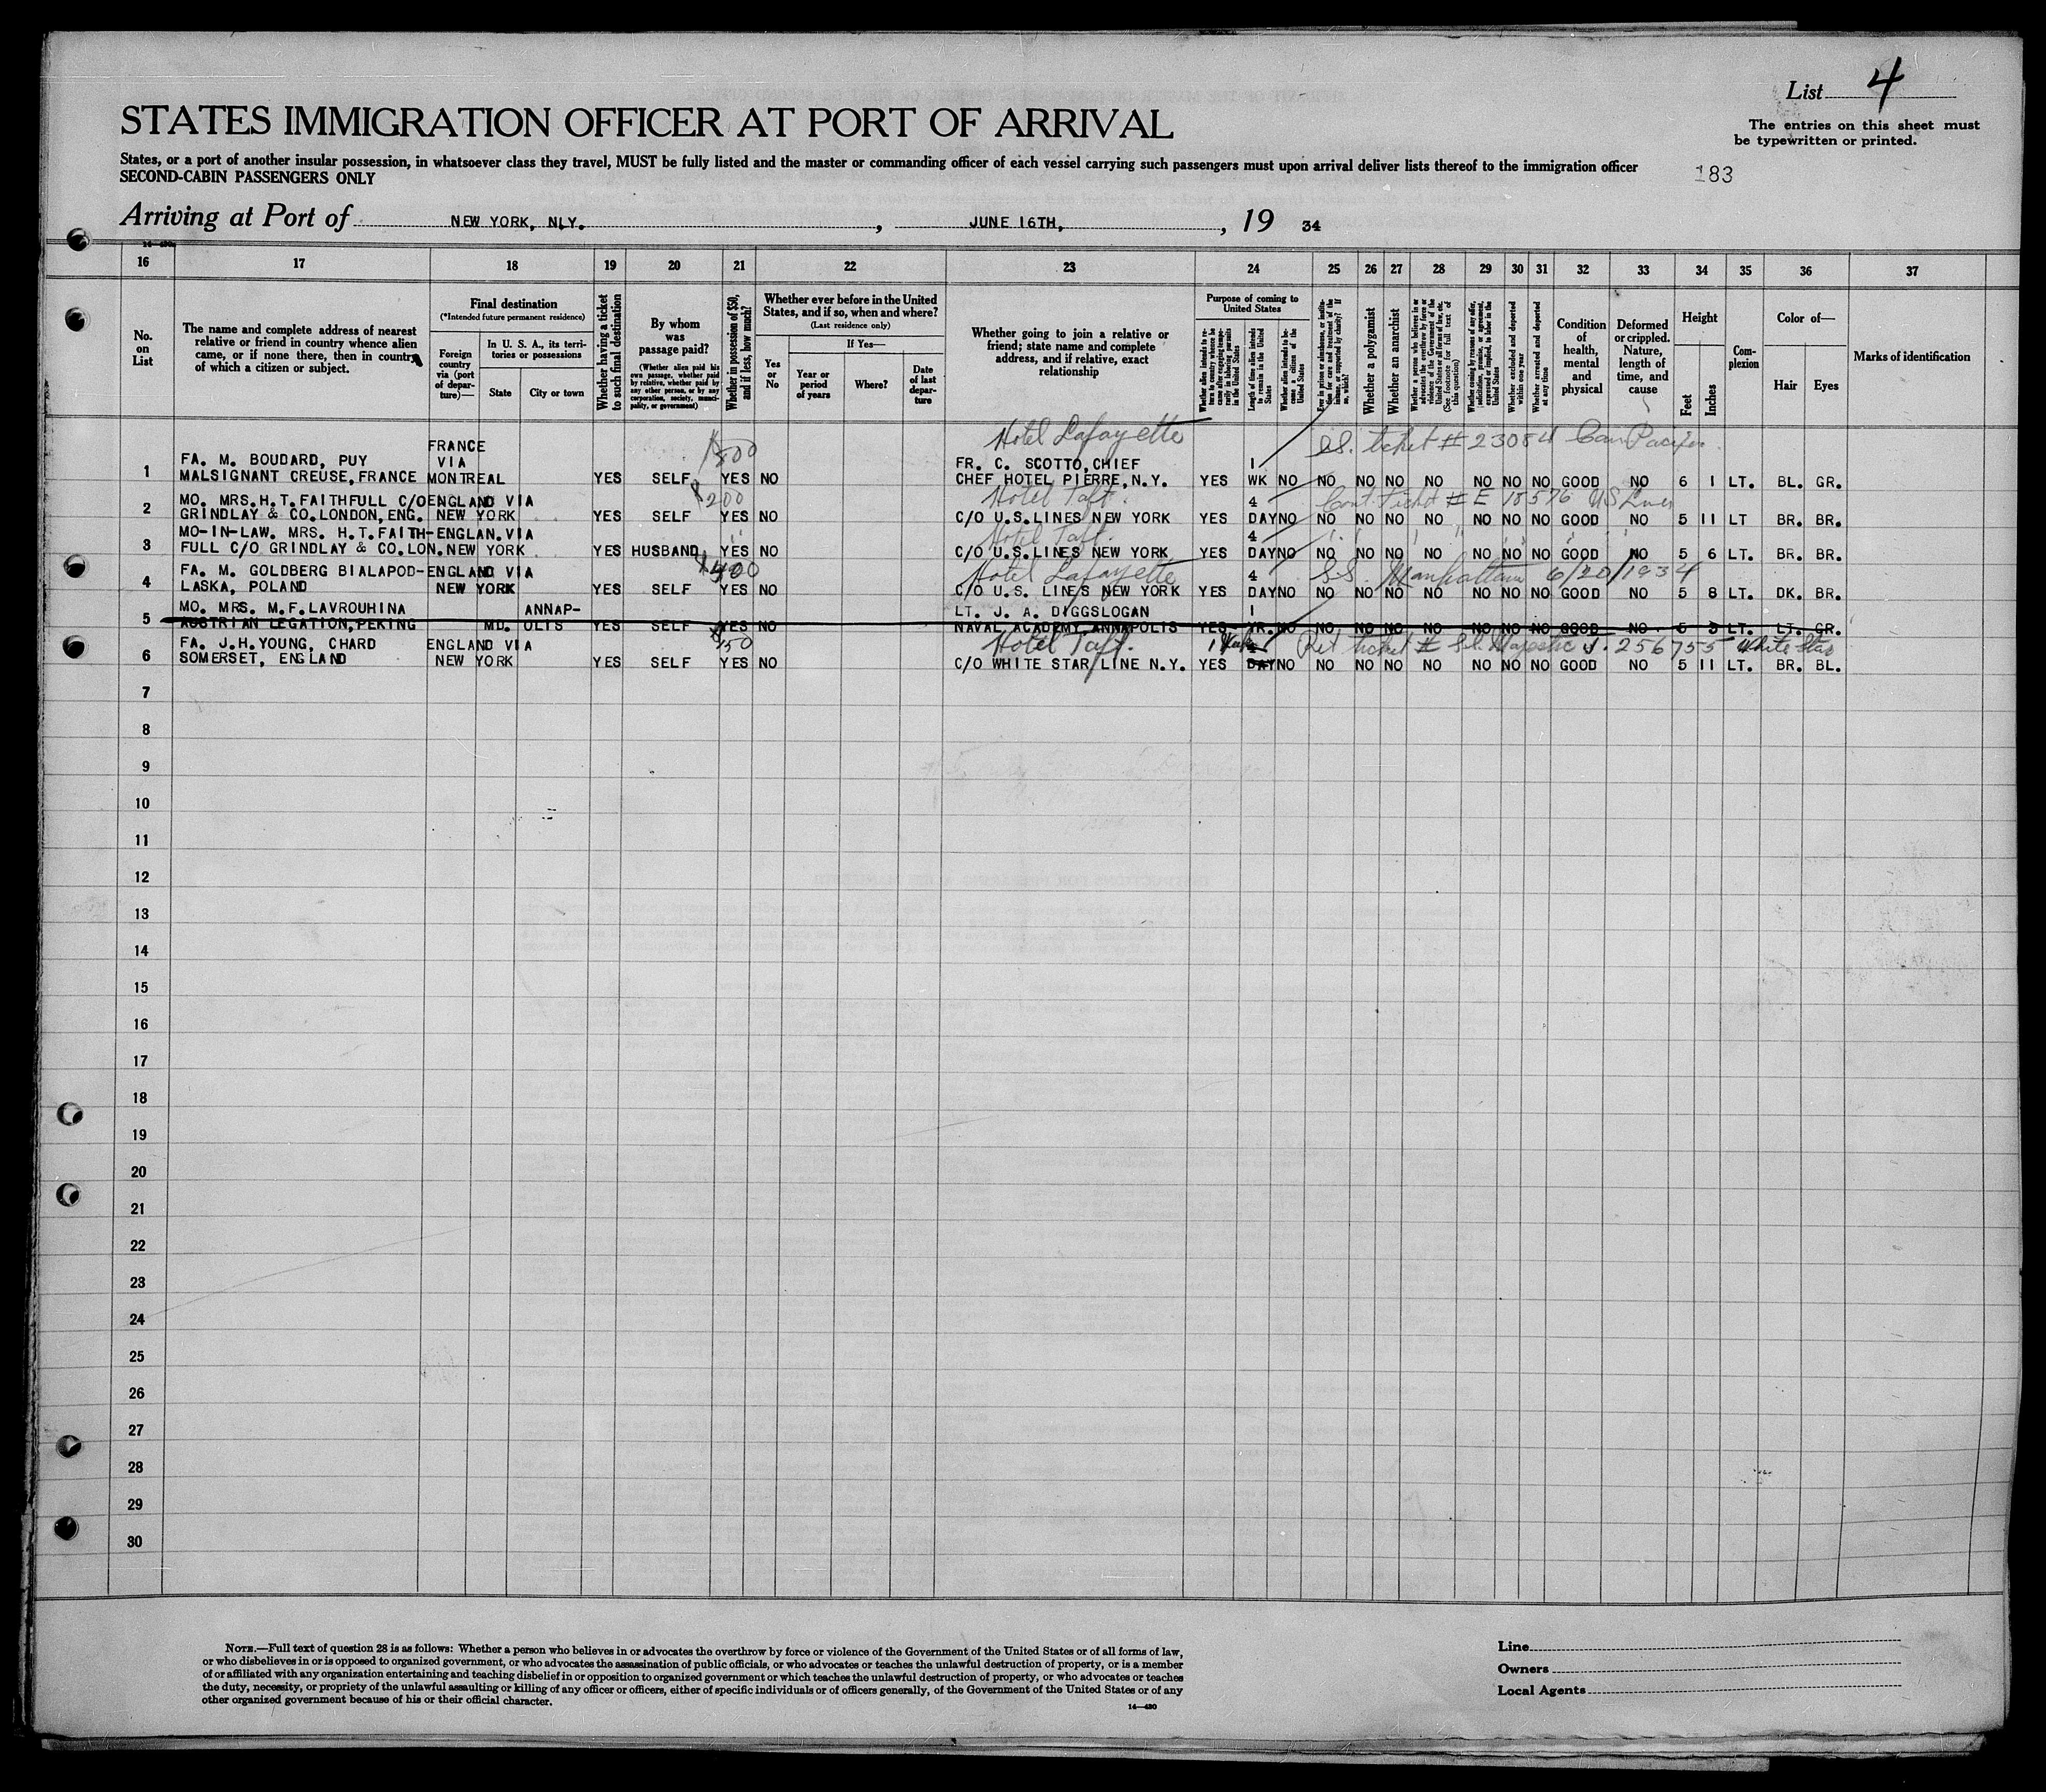 List 4
STATES IMMIGRATION OFFICER AT PORT OF ARRIVAL
The entries on this sheet must
be typewritten or printed.
States, or a port of another insular possession, in whatsoever class they travel, MUST be fully listed and the master or commanding officer of each vessel carrying such passengers must upon arrival deliver lists thereof to the immigration officer
SECOND-CABIN PASSENGERS ONLY
183
Arriving at Port of NEW YORK, NLY. , JUNE 16TH, , 19 34
16 17 18 19 20 21 22 23 24 25 26 27 28 29 30 31 32 33 34 35 36 37
No. on List
The name and complete address of nearest
relative or friend in country whence alien
came, or if none there, then in country
of which a citizen or subject.
Final destination
(*Intended future permanent residence)
Foreign country via (port of departure)—
In U. S. A., its territories or possessions
State
City or town
Whether having a ticket to such final destination
By whom was passage paid?
(Whether alien paid his own passage, whether paid by relative, whether paid by any other person, or by any corporation, society, municipality, or government)
Whether in possession of $50, and if less, how much?
Whether ever before in the United States, and if so, when and where?
(Last residence only)
Yes or No
If Yes—
Year or period of years
Where?
Date of last departure
Whether going to join a relative or
friend; state name and complete
address, and if relative, exact
relationship
Purpose of coming to United States
Length of time alien intends to remain in the United States
Whether alien intends to become a citizen of the United States
Whether a polygamist
Whether an anarchist
Whether excluded and deported within one year
Whether arrested and deported at any time
Condition of health, mental and physical
Deformed or crippled. Nature, length of time, and cause
Height
Feet
Inches
Complexion
Color of—
Hair
Eyes
Marks of identification
$800 Hotel Lafayette SS. ticket # 23084 Can Pacific
FRANCE
1 FA. M. BOUDARD, PUY VIA FR. C. SCOTTO, CHIEF 1
MALSIGNANT CREUSE, FRANCE MONTREAL YES SELF YES NO CHEF HOTEL PIERRE, N.Y. YES WK NO NO NO NO NO NO NO NO GOOD NO 6 1 LT. BL. GR.
$200 Hotel Taft. Cont. Ticket # E 18576 US Lines
2 MO. MRS. H. T. FAITHFULL C/O ENGLAND VIA 4
GRINDLAY & CO. LONDON, ENG. NEW YORK YES SELF YES NO C/O U.S. LINES NEW YORK YES DAY NO NO NO NO NO NO NO NO GOOD NO 5 11 LT BR. BR.
Hotel Taft.
3 MO-IN-LAW. MRS. H. T. FAITH- ENGLAN. VIA 4
FULL C/O GRINDLAY & CO. LON. NEW YORK YES HUSBAND YES NO C/O U.S. LINES NEW YORK YES DAY NO NO NO NO NO NO NO NO GOOD NO 5 6 LT. BR. BR.
$400 Hotel Lafayette SS. Manhattan 6/20/1934
4 FA. M. GOLDBERG BIALAPOD- ENGLAND VIA 4
LASKA, POLAND NEW YORK YES SELF YES NO C/O U.S. LINES NEW YORK YES DAY NO NO NO NO NO NO NO NO GOOD NO 5 8 LT. DK. BR.
5 MO. MRS. M. F. LAVROUHINA ANNAP- LT. J. A. DIGGSLOGAN 1
AUSTRIAN LEGATION, PEKING MD. OLIS YES SELF YES NO NAVAL ACADEMY ANNAPOLIS YES YR. NO NO NO NO NO NO NO NO GOOD NO 5 3 LT. LT. GR.
$150 Hotel Taft. 1 Week Ret ticket # S.S. Majestic 256755 White Star
6 FA. J. H. YOUNG, CHARD ENGLAND VIA 4
SOMERSET, ENGLAND NEW YORK YES SELF YES NO C/O WHITE STAR LINE N.Y. YES DAY NO NO NO NO NO NO NO NO GOOD NO 5 11 LT. BR. BL.
7
8
9
10
11
12
13
14
15
16
17
18
19
20
21
22
23
24
25
26
27
28
29
30
NOTE.—Full text of question 28 is as follows: Whether a person who believes in or advocates the overthrow by force or violence of the Government of the United States or of all forms of law,
or who disbelieves in or is opposed to organized government, or who advocates the assassination of public officials, or who advocates or teaches the unlawful destruction of property, or is a member
of or affiliated with any organization entertaining and teaching disbelief in or opposition to organized government or which teaches the unlawful destruction of property, or who advocates or teaches
the duty, necessity, or propriety of the unlawful assaulting or killing of any officer or officers, either of specific individuals or of officers generally, of the Government of the United States or of any
other organized government because of his or their official character.
14—430
Line
Owners
Local Agents